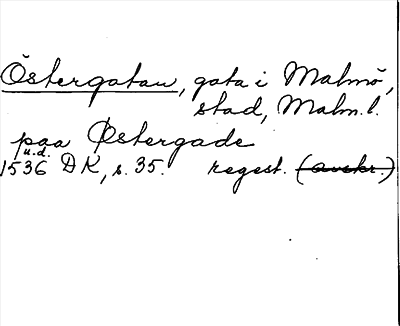 Östergatan, gata i Malmö,
stad, Malm. l.
paa Østergade
u.d.
1536 DK, s. 35. regest. (avskr.)